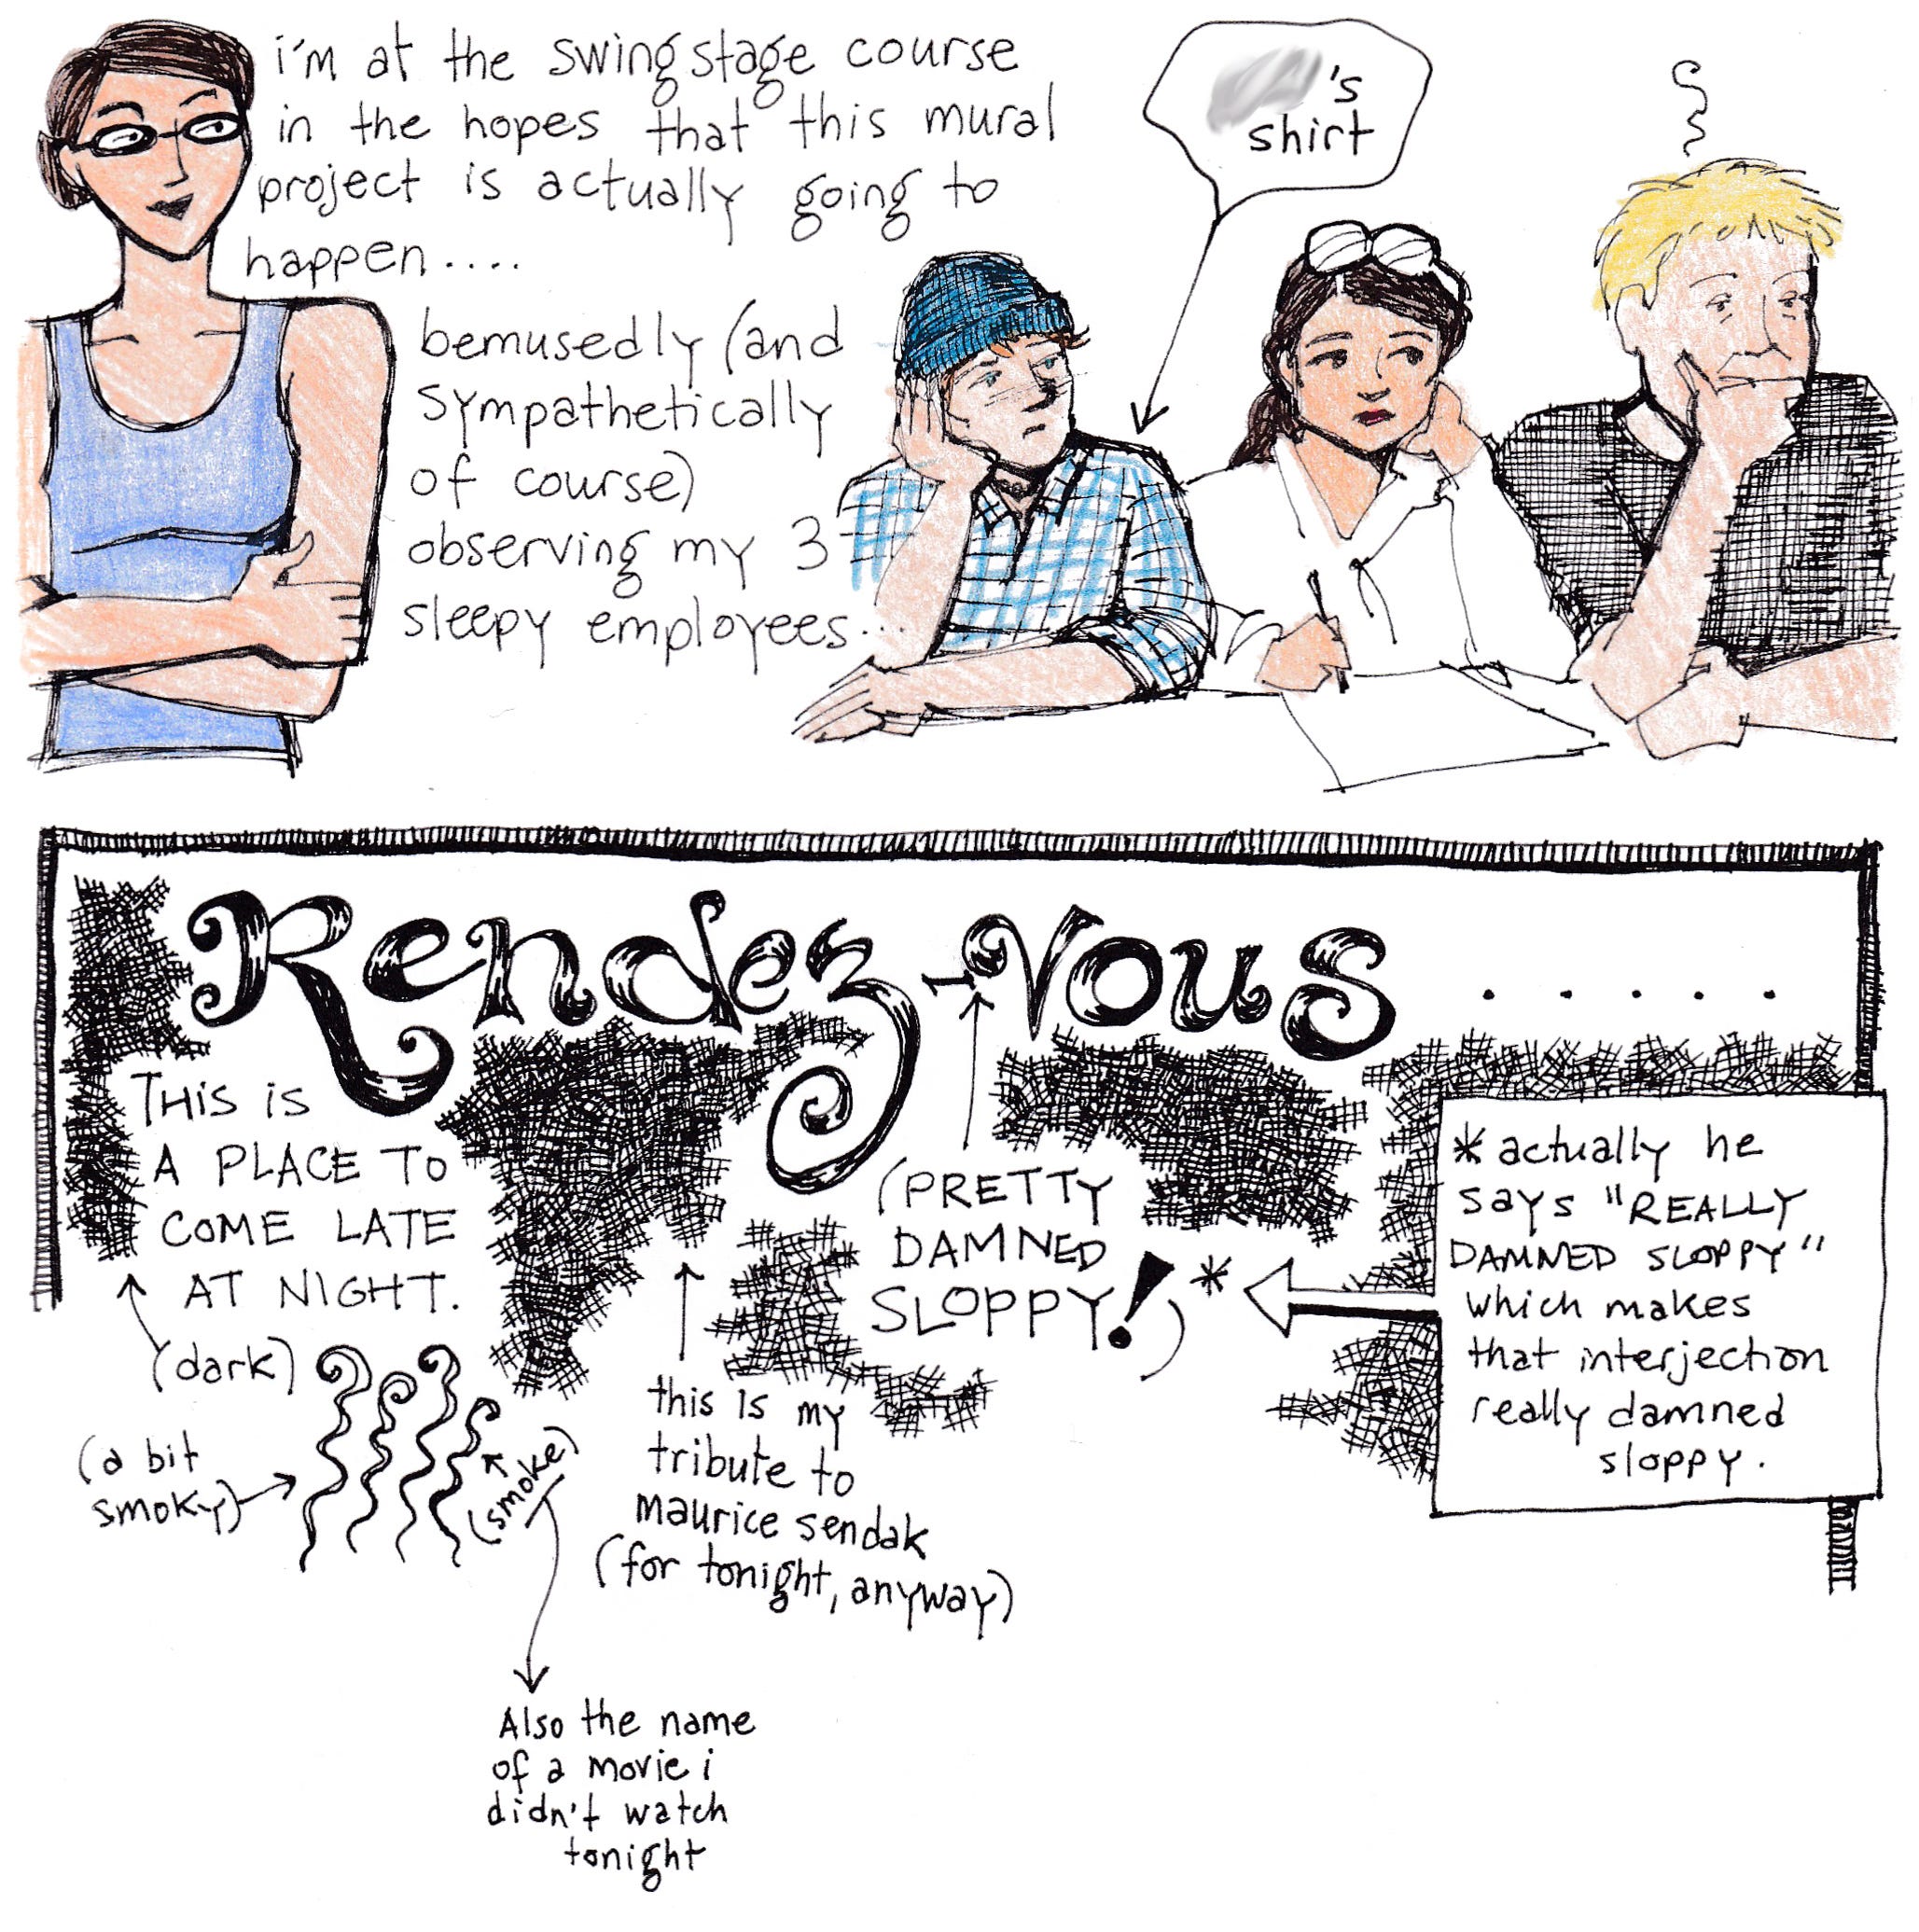 i'm at the swingstage course
in the hopes that this mural
project is actually going to
happen....
bemusedly (and
sympathetically
of course)
observing my 3
sleepy employees...
's
shirt
Rendez-Vous .....
THIS IS
A PLACE TO
COME LATE
AT NIGHT.
(dark)
(a bit
smoky)
(smoke)
Also the name
of a movie i
didn't watch
tonight
this is my
tribute to
maurice sendak
(for tonight, anyway)
(PRETTY
DAMNED
SLOPPY!)*
*actually he
says "REALLY
DAMNED SLOPPY"
which makes
that interjection
really damned
sloppy.